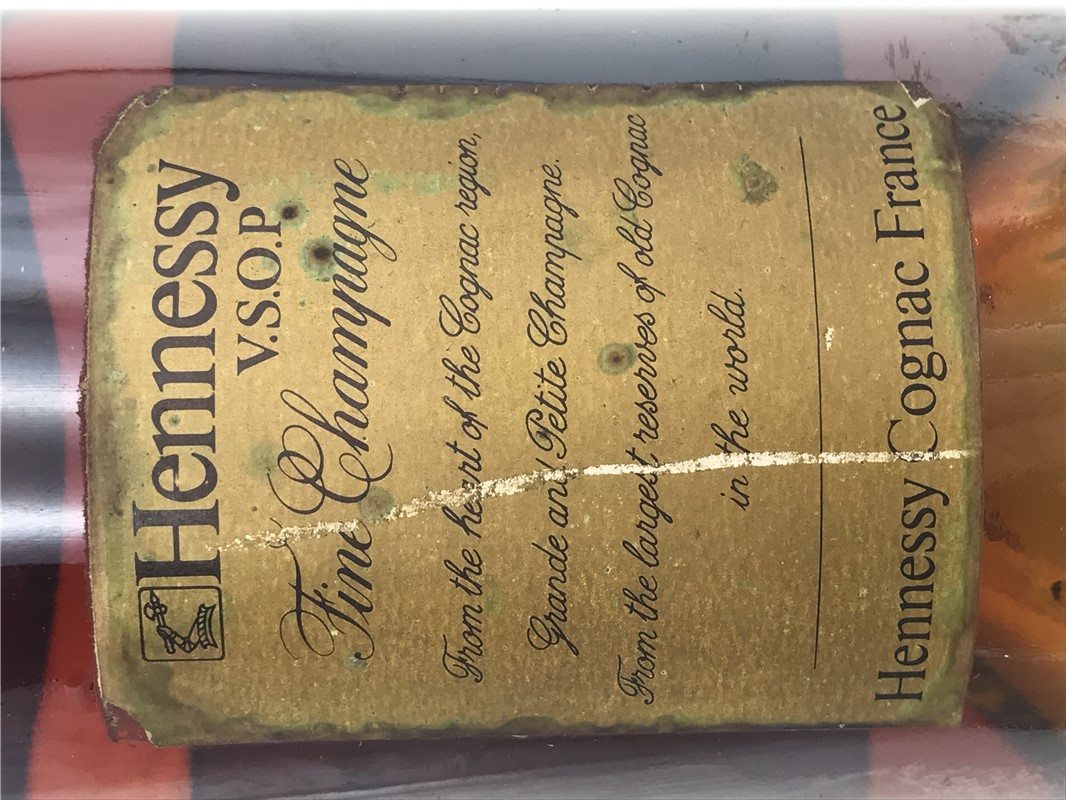 Hennessy
V.S.O.P
Fine Champagne
From the heart of the Cognac region,
Grande and Petite Champagne.
From the largest reserves of old Cognac
in the world.
Hennessy Cognac France